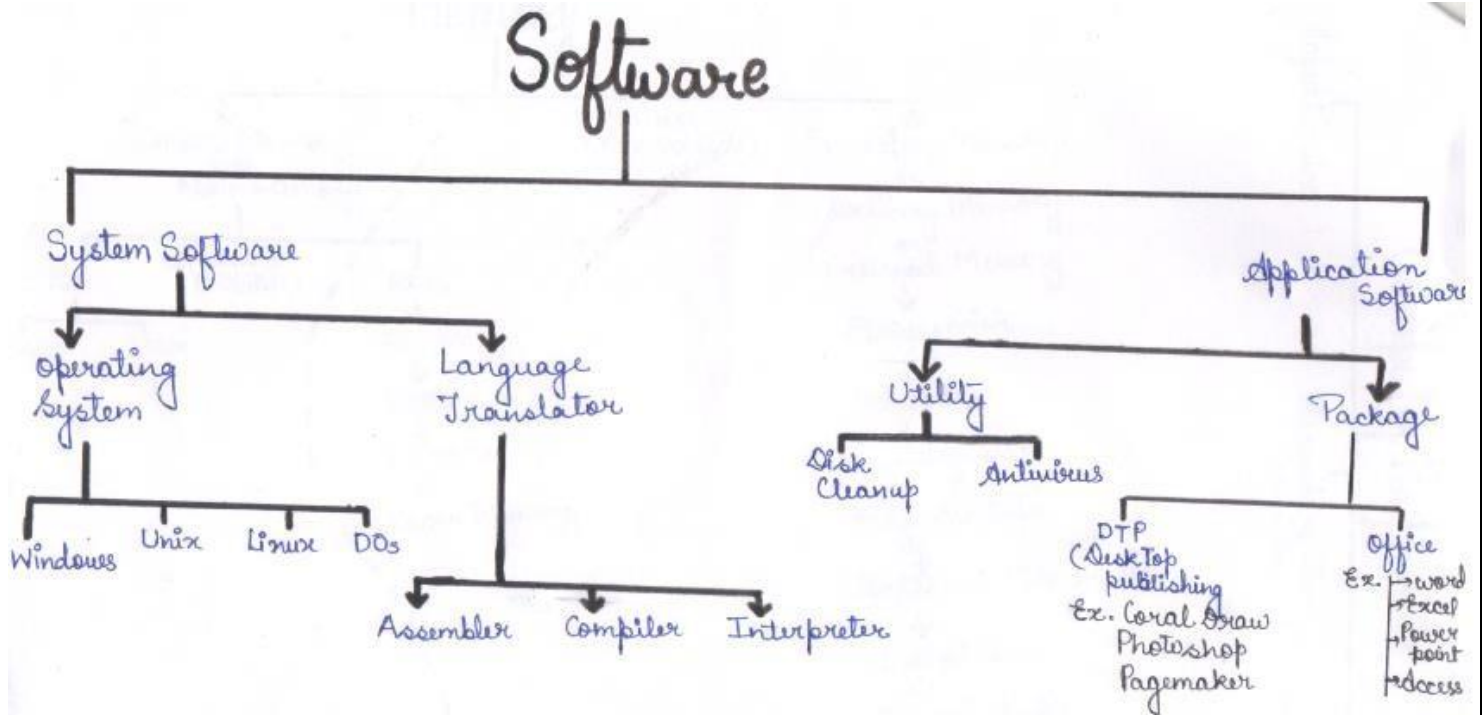 Software
System Software
Application
Software
Operating
System
Language
Translator
Utility
Package
Windows
Unix
Linux
DOs
Assembler
Compiler
Interpreter
Disk
Cleanup
Antivirus
DTP
(DeskTop
publishing
Ex. Coral Draw
Photoshop
Pagemaker
Office
Ex. → word
→ Excel
→ Power
point
→ Access